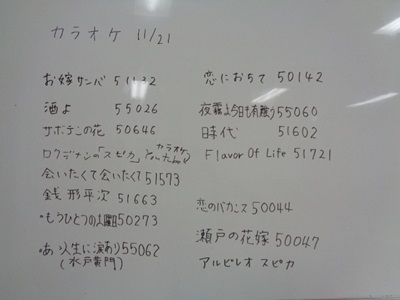 カラオケ 11/21
お嫁サンバ 51132
酒よ 55026
サボテンの花 50646
ロクデナシの「スピカ」 カラオケ YouTubeの
会いたくて会いたくて 51573
銭形平次 51663
•もうひとつの土曜日 50273
•あゝ人生に涙あり 55062
(水戸黄門)
恋におちて 50142
夜霧よ今日も有難う 55060
時代 51602
Flavor Of Life 51721
恋のバカンス 50044
瀬戸の花嫁 50047
アルビレオ スピカ